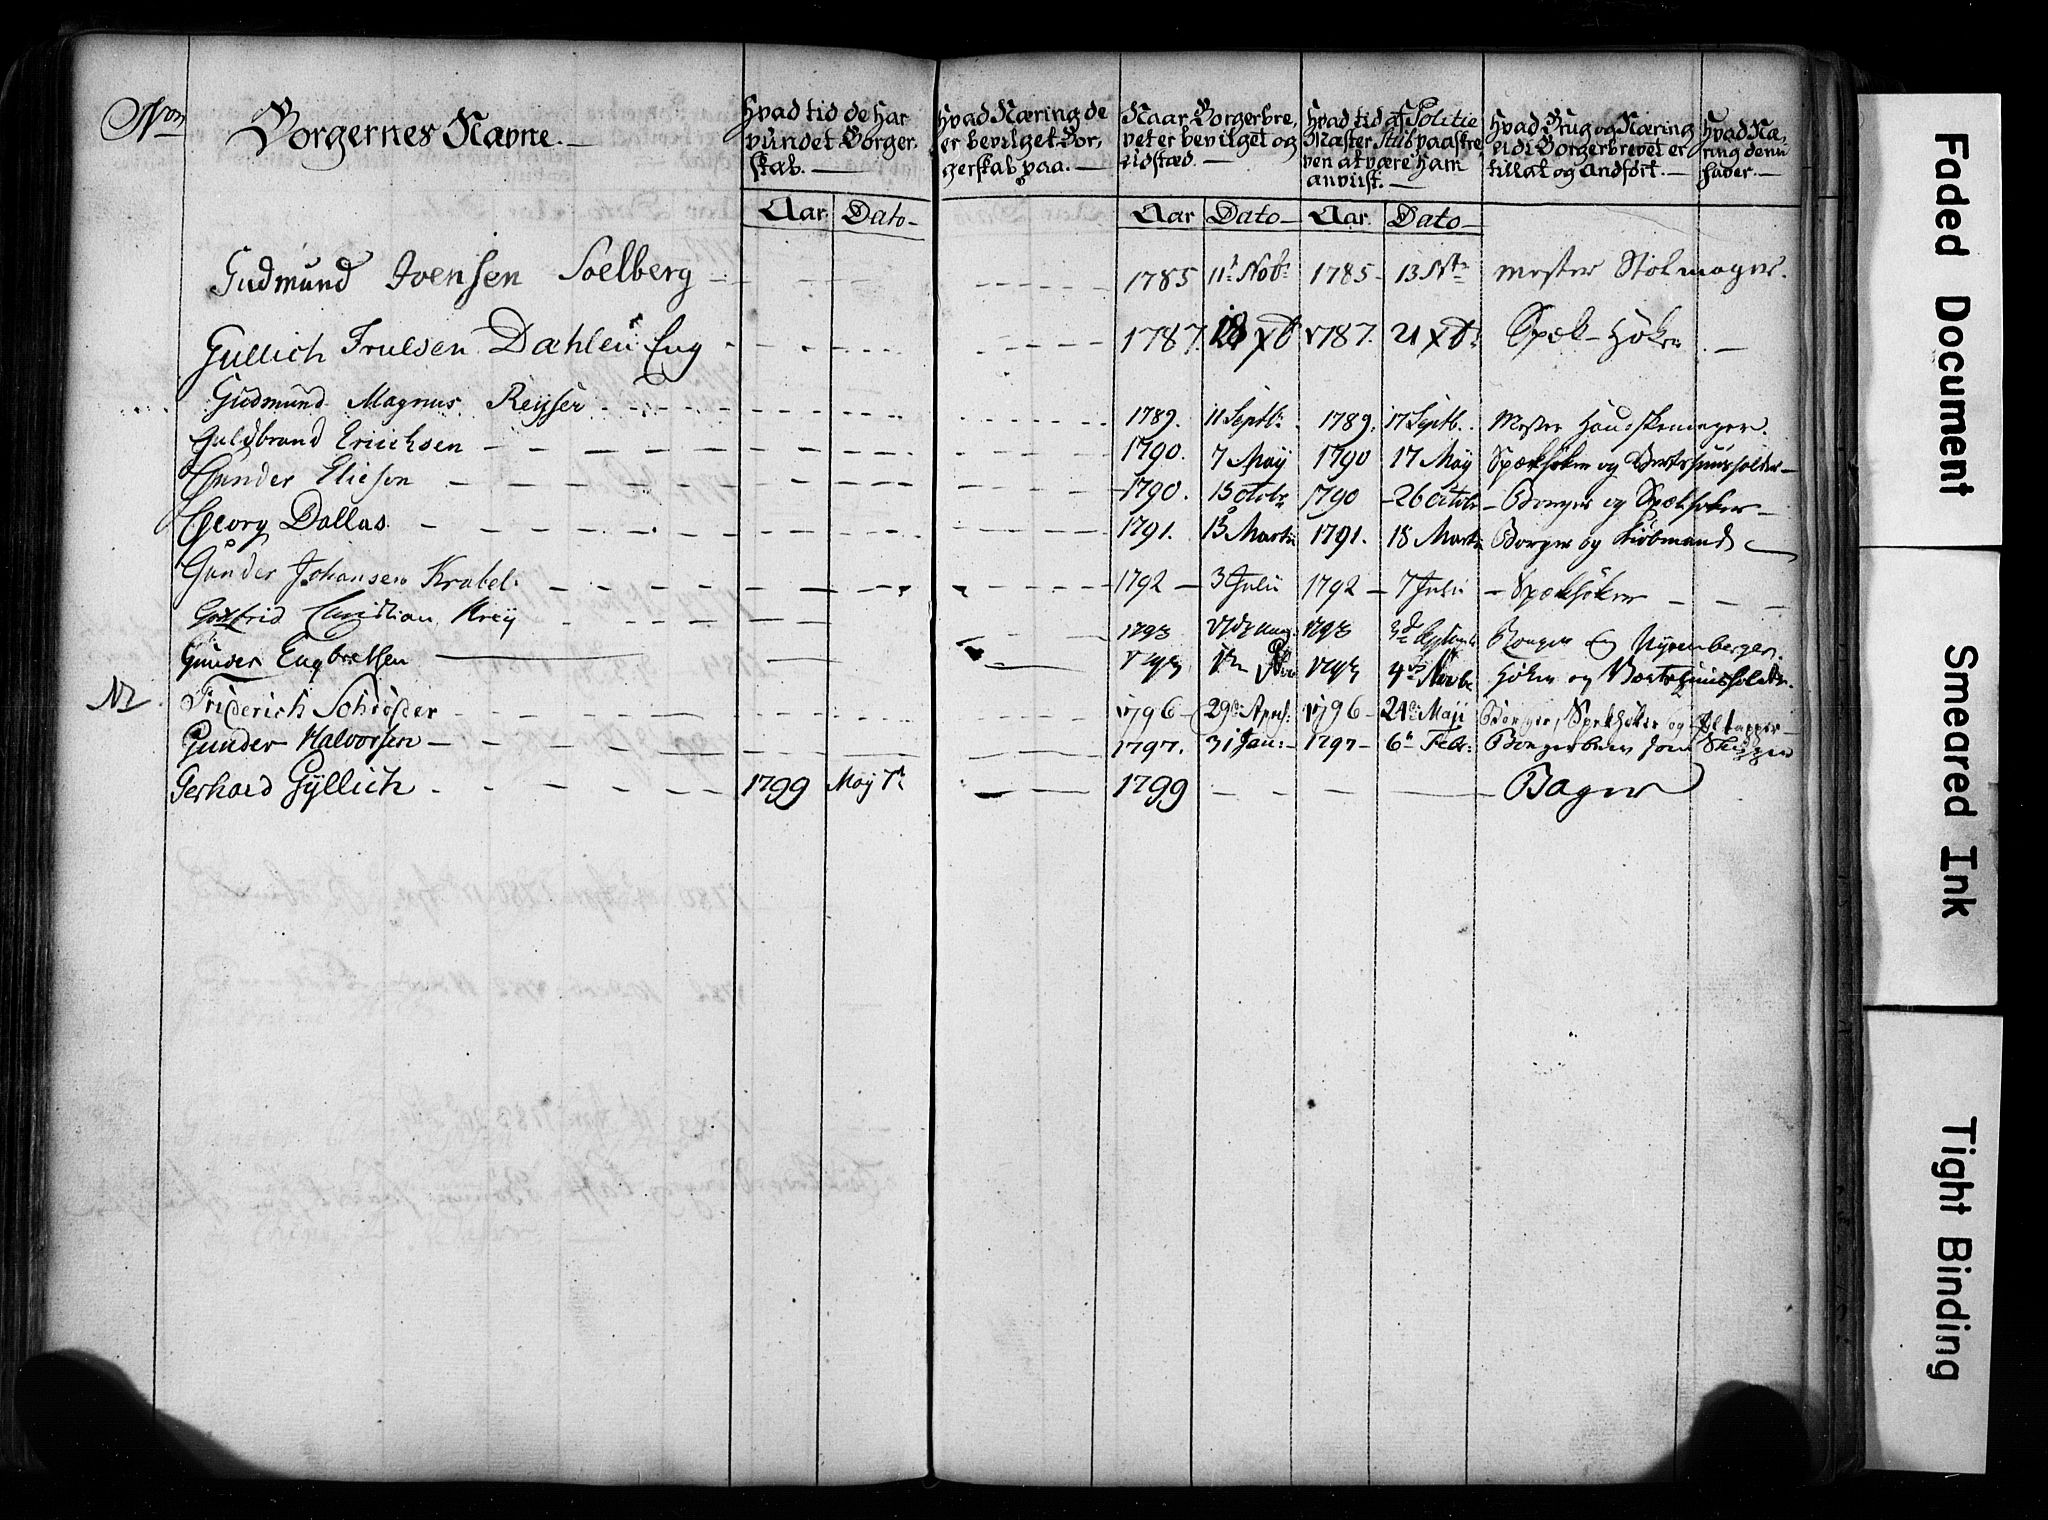 Nom
Borgernes Navne. —
Hvad tid de har vundet Borgerskab. —
Hvad Næring de er bevilget Borgerskab paa. —
Naar Borgerbrevet er bevilget og udstæd. —
Hvad tid af Politie Mæster Skibpaaskreven at være ham anviist. —
Hvad Brug og Næring udi Borgerbrevet er tillat og andført. —
Hvad Næring denn haver. —
Aar Dato — Aar Dato — Aar Dato —
Gudmund Ivensen Soelberg 1785 11te Nobr 1785 - 13 Mester Stolmager.
Gullich Truelsen Dahlen Eng 1787. 18 xbr 1787. 21 xbr Spæk-Höker. —
Gudmund Magnus Reyser 1789. 11 Septbr 1789. 17 Septb. Mester Handskemager.
Guldbrand Eriichsen 1790. 7 May 1790 17 May Spækhöker og Vertshuusholder —
Gunder Elieson 1790. 15 octobr 1790 - 26 octobr - Borger og Spækhøker —
Georg Dallas 1791. 15 Martii 1791. 18 Martii Borger og Kiöbmand
Gunder Johansen Krabel. 1792 — 3 Julii 1792 — 7 Julii — Spækhöker
Gottfrid Christian Kreÿ 1793 1793 3d Septemb Borger og Nÿrenberger.
Gunder Engbretsen 1793 1793 4de Novbr Höker og Vertshuusholder.
N2. Friderich Schröder 1796 — 29de April: 1796 — 24de Maji Borger, Spekhöker og Öltapper
Gunder Halvorsen — 1797. 31 Jan: — 1797 — 6te Febr: Borgerbrev som Skipper
Gerhard Gÿllich 1799 May 7de 1799 Bager
Faded Document
Smeared Ink
Tight Binding